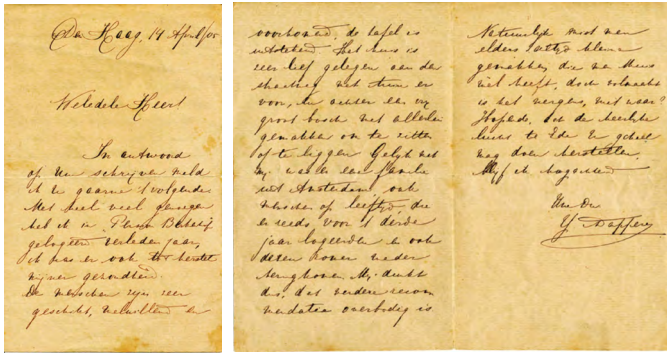 Den Haag, 14 April/05
Weledele Heer!
In antwoord
op Uw schrijven meld
ik U gaarne 't volgende.
Met heel veel genoegen
heb ik in
gelogeerd verleden jaar,
ik was er ook tot herstel
mijner gezondheid.
De menschen zijn zeer
geschikt, en
voorkomend, de tafel is
uitstekend. Het huis is
zeer lief gelegen aan den
straatweg met tuin er
voor, en achter een vrij
groot bosch met allerlei
gemakken om te zitten
of te liggen. Gelijk met
mij was er een familie
uit Amsterdam, ook
menschen op leeftijd, die
er reeds voor 't derde
jaar logeerden en ook
dezen zomer weder
terugkomen. Mij dunkt
dus, dat verdere recom
mandatie overbodig is.
Natuurlijk moet men
elders kleine
gemakken, die men thuis
wel heeft, doch volmaakt
is het nergens, niet waar?
Hopende, dat de heerlijke
lucht te Ede U geheel
mag doen herstellen,
blijf ik hoogachtend
Uw Dw